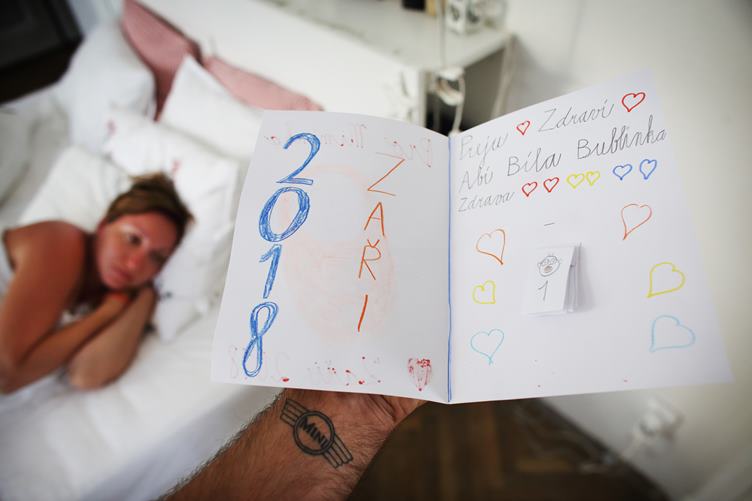 2018
ZAŘI
Preju Zdraví
Abi Bíla Bublinka
Zdrava
1
MINI